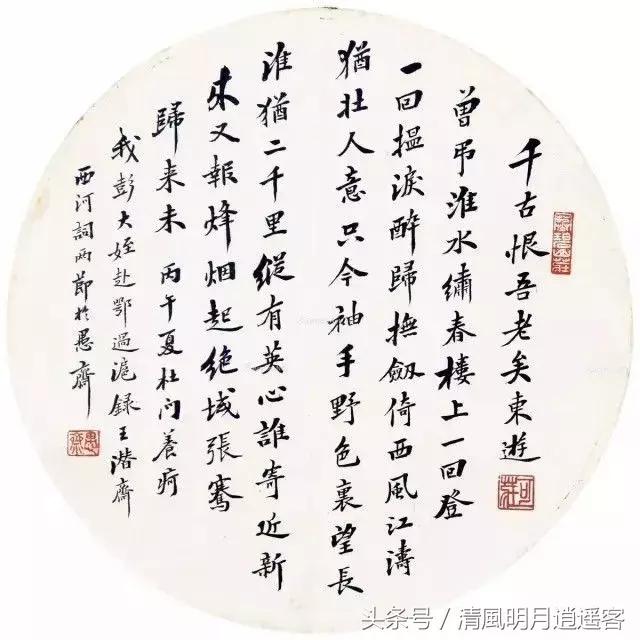 千古恨吾老矣東遊
曾弔淮水繡春樓上一回登
一回搵淚醉歸撫劔倚西風江濤
猶壯人意只今袖手野色裏望長
淮猶二千里縱有英心誰寄近新
来又報烽烟起絶域張騫
歸来未 丙午夏杜门養疴
我彭大姪赴鄂過滬録王潛齋
西河詞兩節於愚齋
愚齋
头条号 / 清風明月逍遥客